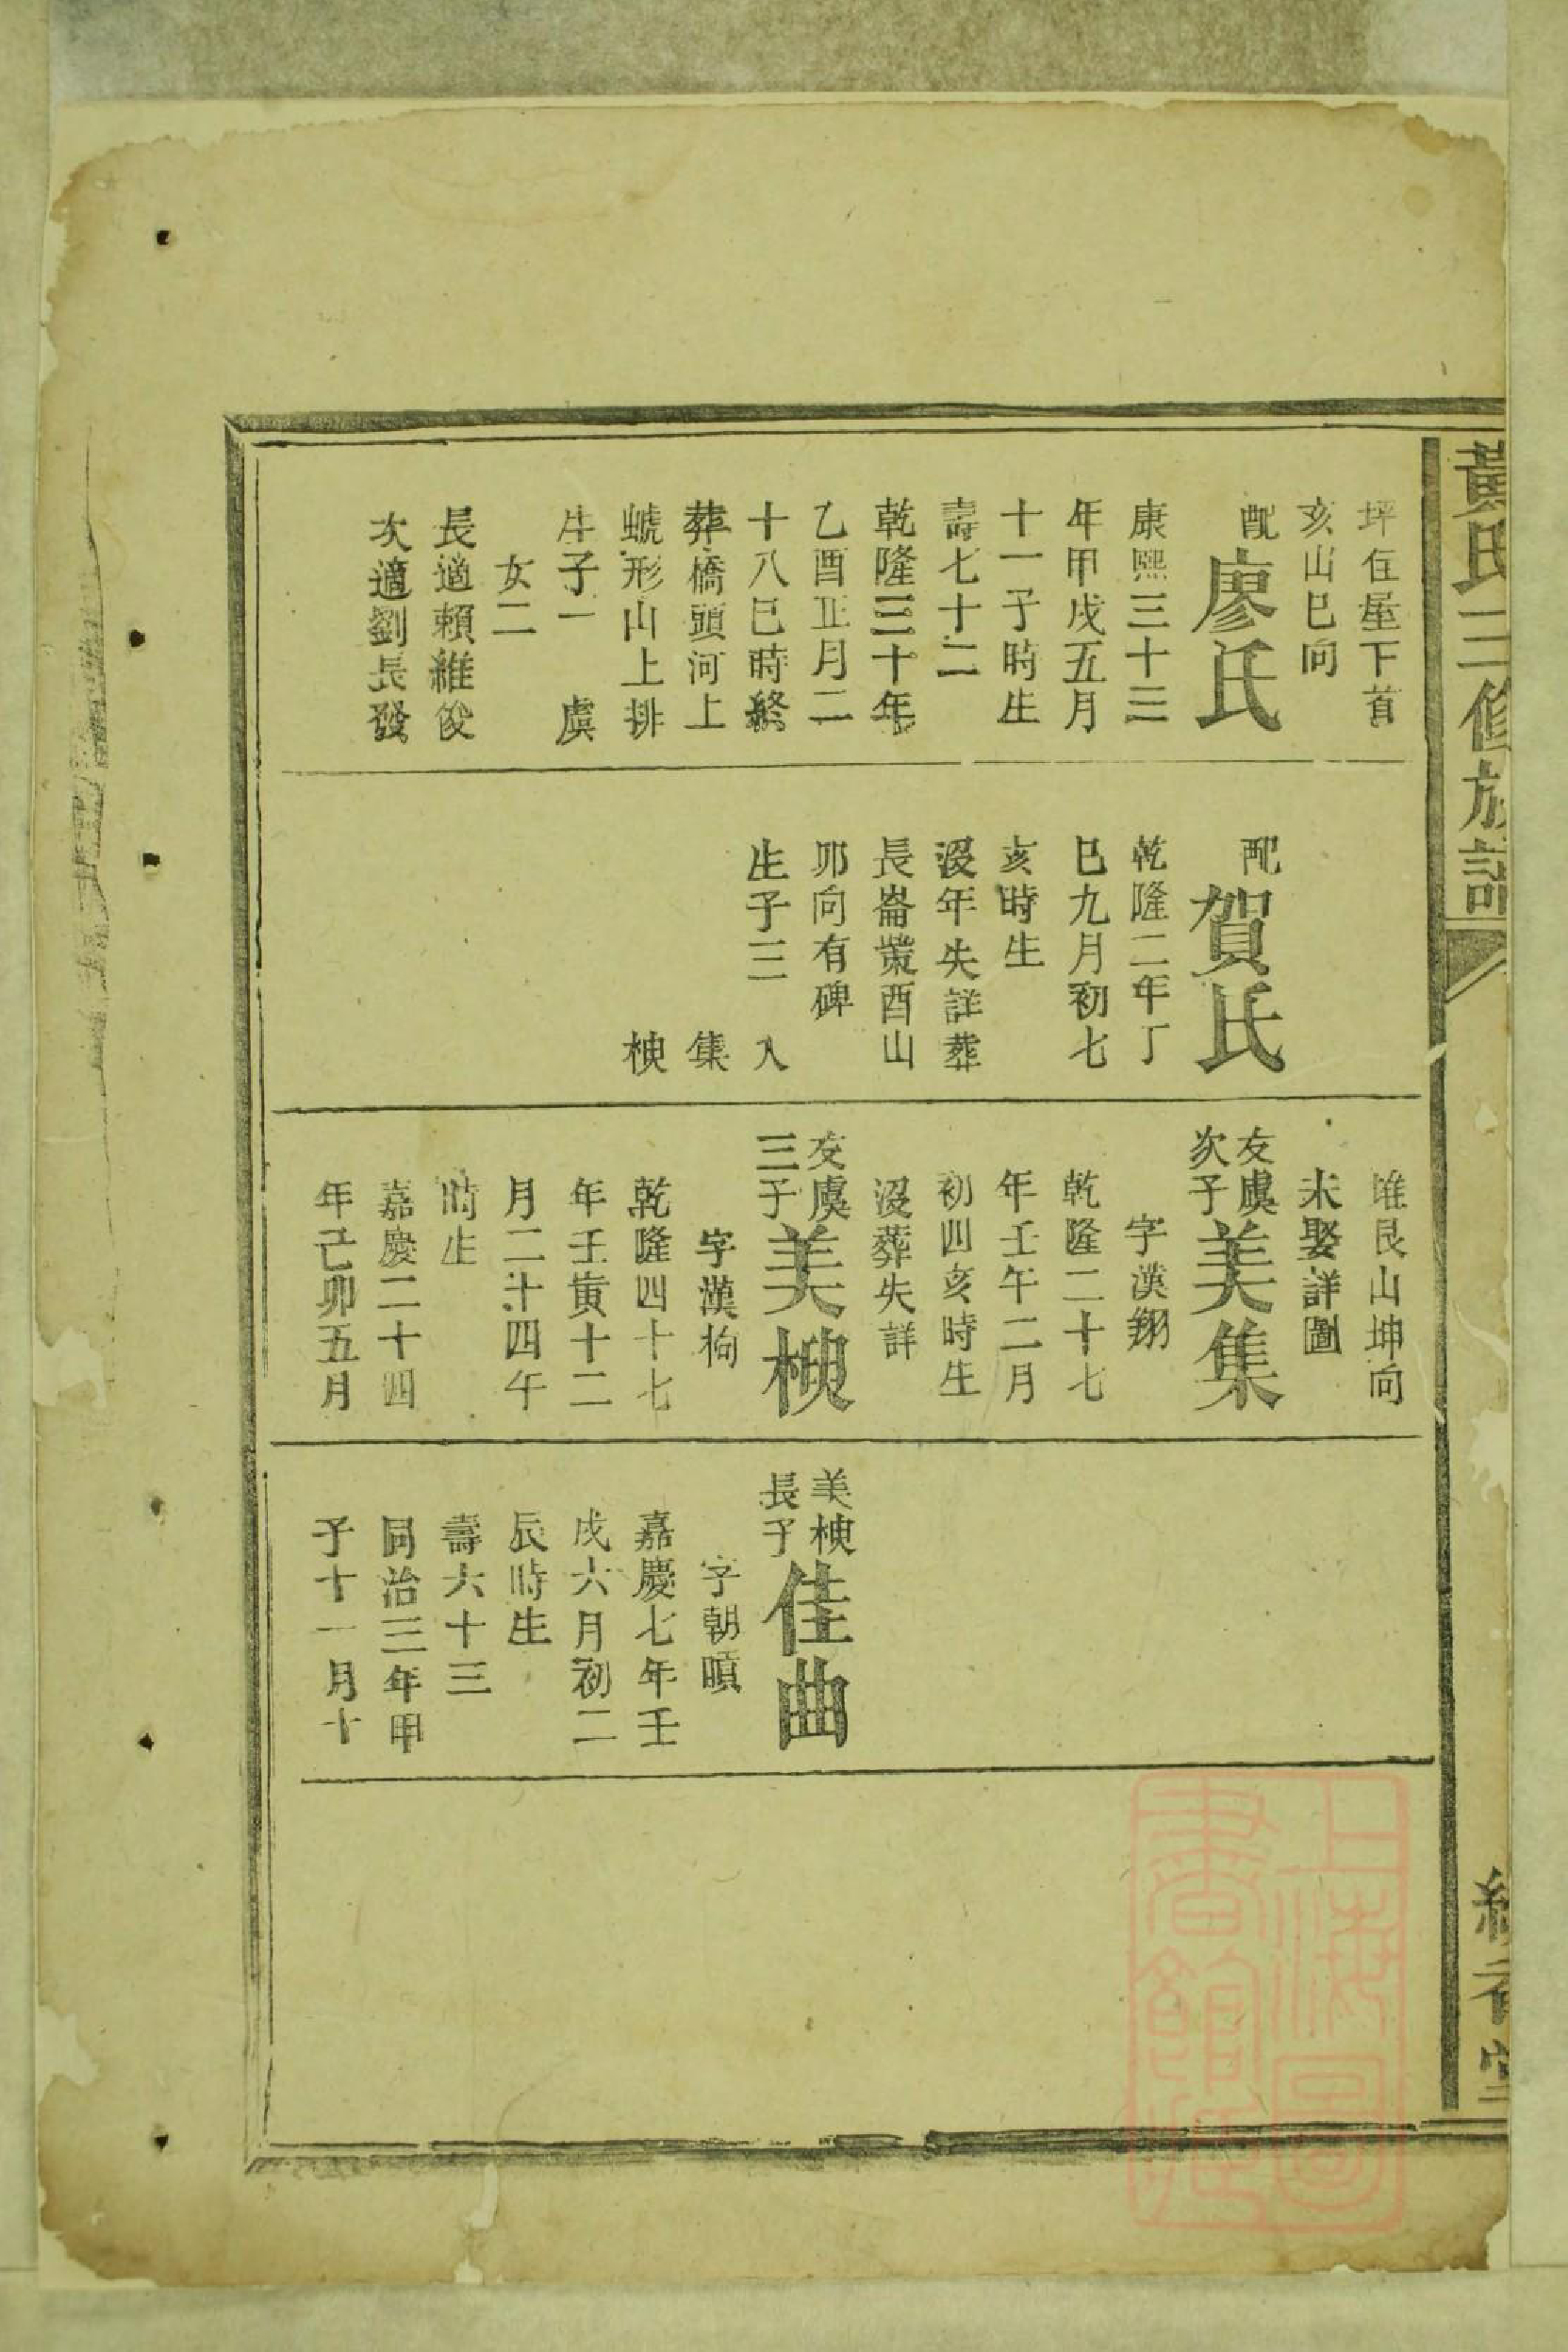 黃氏三修族譜
坪住屋下首
亥山巳向
配廖氏
康熙三十三
年甲戌五月
十一子時生
壽七十二
乾隆三十年
乙酉正月二
十八巳時終
葬橋頭河上
螃形山上排
生子一 虞
女二
長適賴維俊
次適劉長發
配賀氏
乾隆二年丁
巳九月初七
亥時生
沒年失詳葬
長崙業酉山
卯向有碑
生子三 入
集
楰
堆艮山坤向
未娶詳圖
友虞次子美集
字漢翔
乾隆二十七
年壬午二月
初四亥時生
沒葬失詳
友虞三子美楰
字漢枸
乾隆四十七
年壬寅十二
月二十四午
時生
嘉慶二十四
年己卯五月
美楰長子佳曲
字朝
嘉慶七年壬
戌六月初二
辰時生
壽六十三
同治三年甲
子十一月十
上海圖書館藏